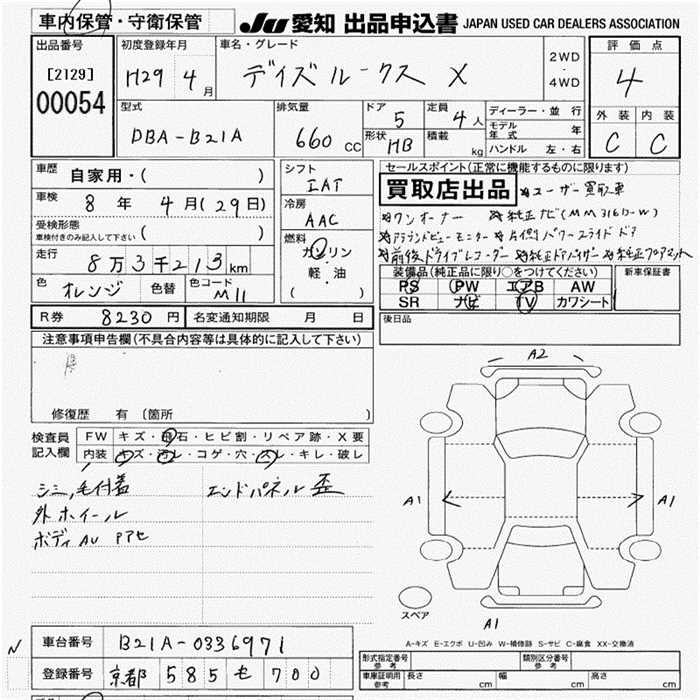 車内保管・守衛保管
JU 愛知 出品申込書 JAPAN USED CAR DEALERS ASSOCIATION
出品番号
[2129]
00054
初度登録年月
H29 4月
車名・グレード
デイズルークス X
2WD
・
4WD
評価点
4
外装 内装
C C
型式
DBA-B21A
排気量
660 CC
ドア
5
定員
4人
形状
HB
積載
kg
ディーラー・並行
モデル年式 年
ハンドル 左・右
車歴
自家用・( )
車検
8年 4月(29日)
受検形態
車検付きのみ記入して下さい ( )
走行
8万3千213km
色
オレンジ
色替
色コード
M11
シフト
IAT
冷房
AAC
燃料
ガソリン
軽・油
( )
セールスポイント(正常に機能するものに限ります)
買取店出品 ※ユーザー買取車
※ワンオーナー ※純正ナビ(MM316D-W)
※アラウンドビューモニター ※片側パワースライドドア
※前後ドライブレコーダー ※純正ドアバイザー ※純正フロアマット
装備品(純正品に限り○をつけてください)
新車保証書
PS PW エアB AW
SR ナビ TV カワシート
後日品
R券 8230円
名変通知期限 月 日
注意事項申告欄(不具合内容等は具体的に記入して下さい)
修復歴 有 〔箇所 〕
検査員
記入欄
FW キズ・飛石・ヒビ割・リペア跡・X要
内装 キズ・汚レ・コゲ・穴・スレ・キレ・破レ
シミ,毛付着
エンドパネル歪
外ホイール
ボディAU Pアセ
A2
A1
A1
A1
スペア
A-キズ E-エクボ U-凹み W-補修跡 S-サビ C-腐食 XX-交換済
車台番号
B21A-0336971
N
登録番号
京都 585 も 700
形式指定番号
参考
類別区分番号
参考
車庫証明用
参考
長さ cm
幅 cm
高さ cm